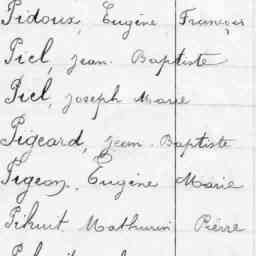 Pidoux, Eugène François
Piel, Jean-Baptiste
Piel, Joseph Marie
Pigeard, Jean-Baptiste
Pigeon, Eugène Marie
Pihuit Mathurin Pierre